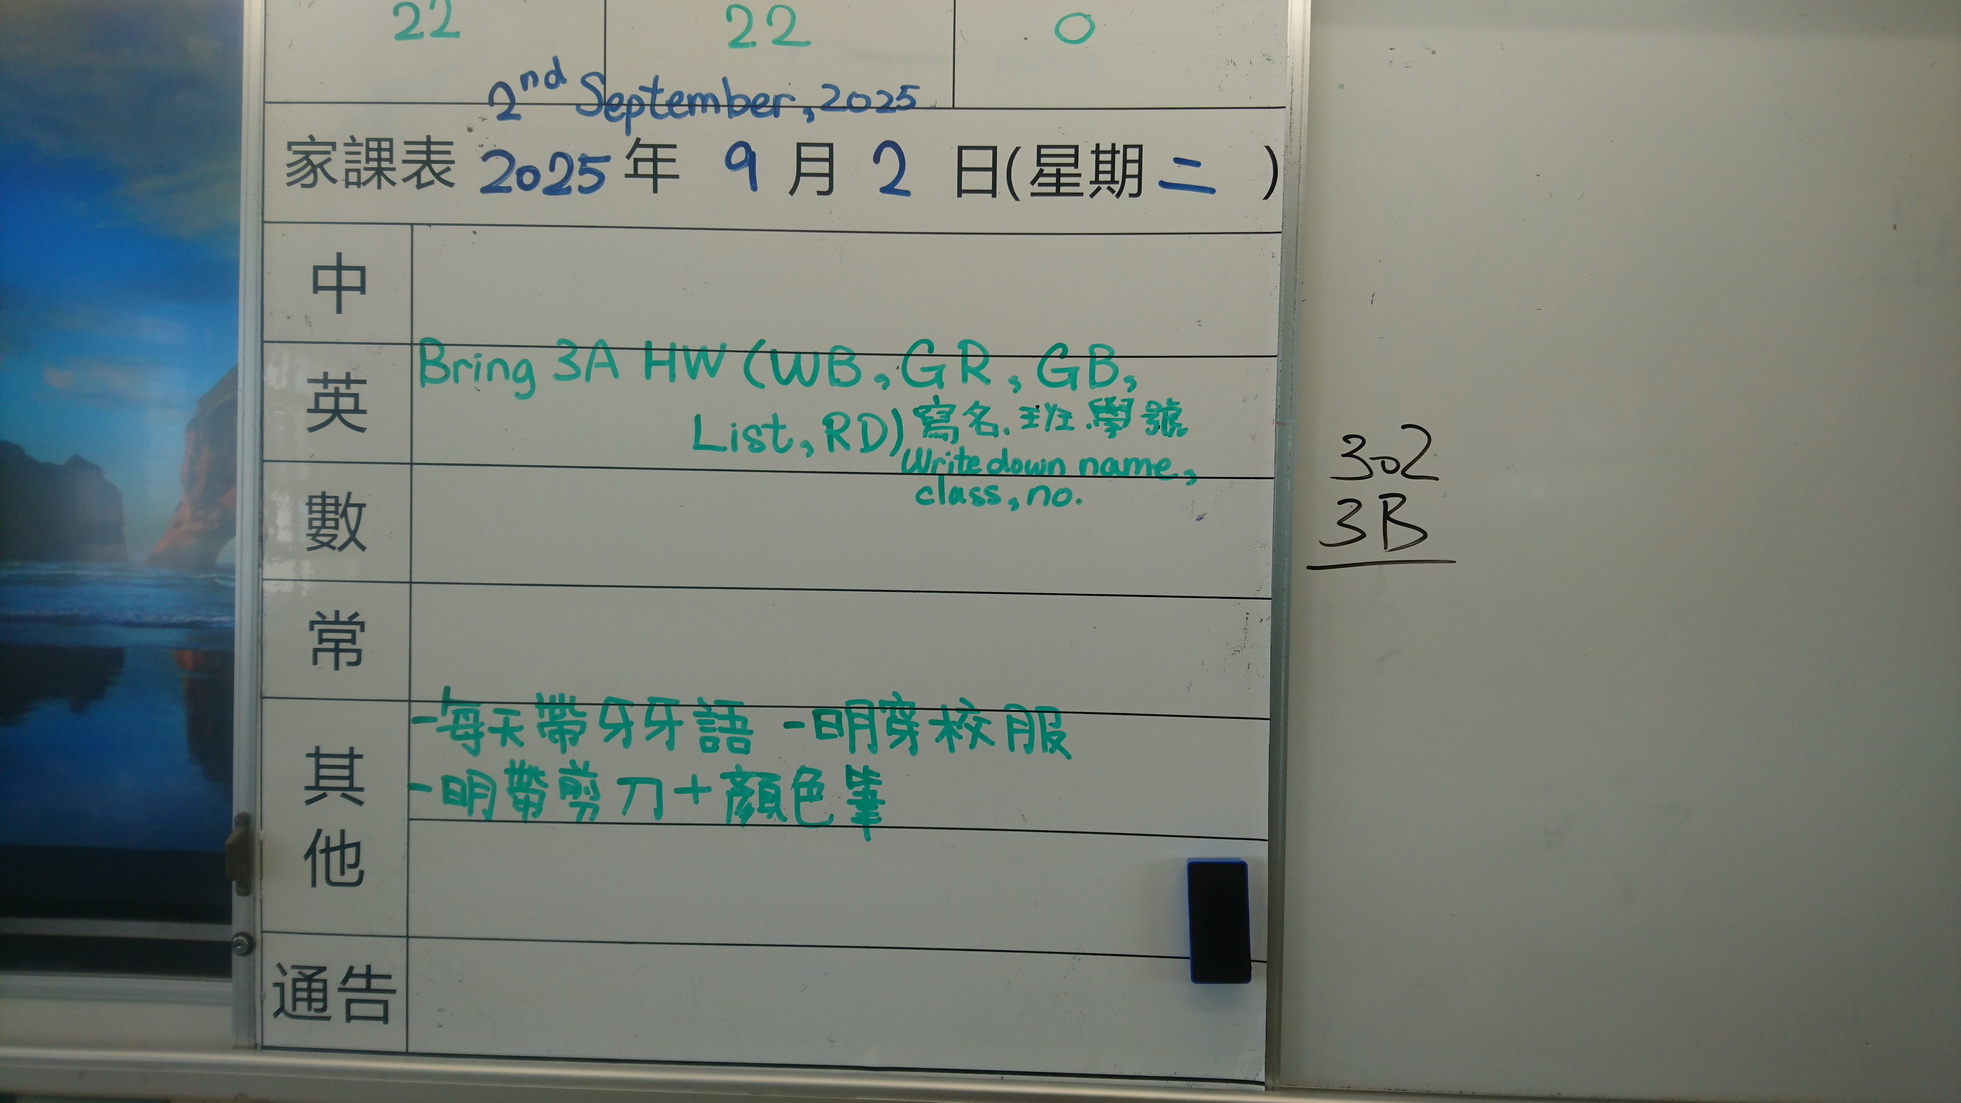 22 22 0
2nd September, 2025
家課表 2025 年 9 月 2 日(星期 二 )
中
英 Bring 3A HW (WB, GR, GB,
List, RD) 寫名.班.學號
Write down name,
class, no.
數
常
其他
-每天帶牙牙語 -明穿校服
-明帶剪刀+顏色筆
通告
302
3B